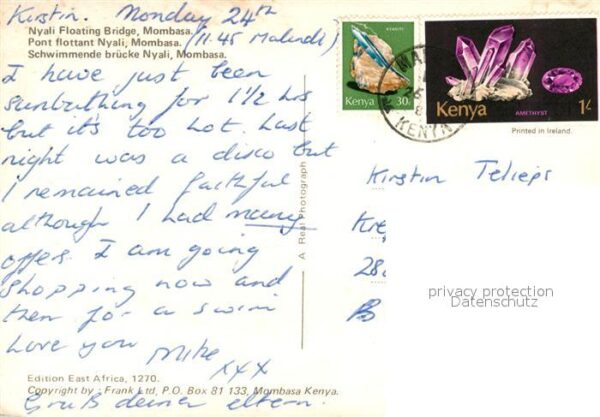 Kirstin. Monday 24th
Nyali Floating Bridge, Mombasa.
(11.45 Malindi)
Pont flottant Nyali, Mombasa.
Schwimmende brücke Nyali, Mombasa.
I have just been
sunbathing for 1 1/2 hrs
but it's too hot. Last
night was a disco but
I remained faithful
although I had many
offers. I am going
shopping now and
then for a swim
Love you Mike
xxx
Edition East Africa, 1270.
Copyright by: Frank Ltd, P.O. Box 81 133, Mombasa Kenya.
Gruß deiner eltern.
A Real Photograph
KYANITE
Kenya 30c
Kenya
AMETHYST
1/-
Printed in Ireland
KENYA
Kirstin
28
B
privacy protection
Datenschutz